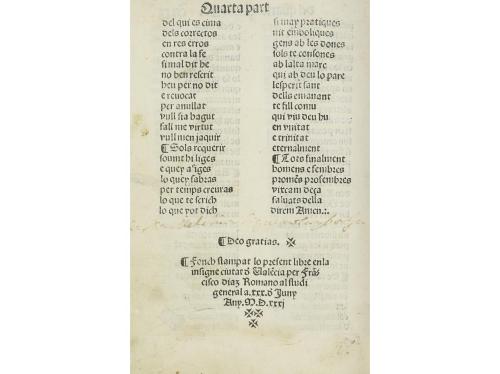 Quarta part
del qui es cima
dels correctos
en res erros
contra la fe
si mal dit he
no ben rescrit
heu per no dit
e reuocat
per anullat
vull sia hagut
fall me virtut
vull nien jaquir
¶ Sols requerir
souint hi liges
e quey afiges
lo quey sabras
per temps creuras
lo que te scrich
lo que yot dich
si may pratiques
nit emboliques
gens ab les dones
sols te consones
ab lalta mare
qui ab deu lo pare
lesperit sant
dells emanant
te fill comu
qui viu deu hu
en vnitat
e trinitat
eternalment
¶ Tots finalment
homens e fembres
promens prosembres
viscam deça
saluats della
direm Amen.:.
¶ Deo gratias. ✠
¶ Fonch stampat lo present libre en la
insigne ciutat d̄ Ualēcia per Frā
cisco diaz Romano al studi
general a.xxx.d̄ Juny
Any.M.D.xxxj
✠✠
✠